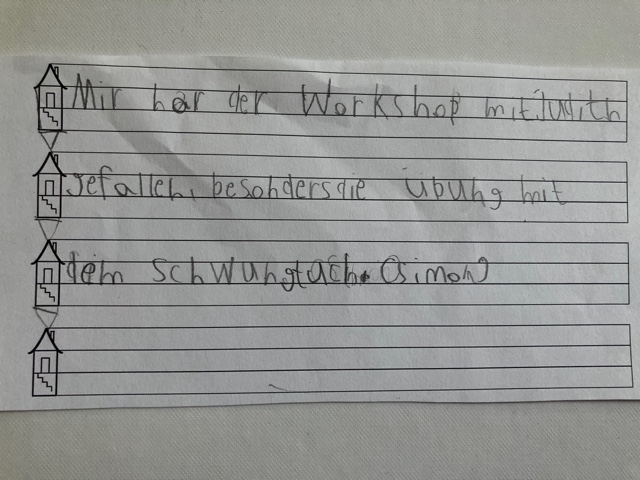 Mir hat der Workshop mit Judith
gefallen, besonders die Übung mit
dem Schwungtuch. (Simon)